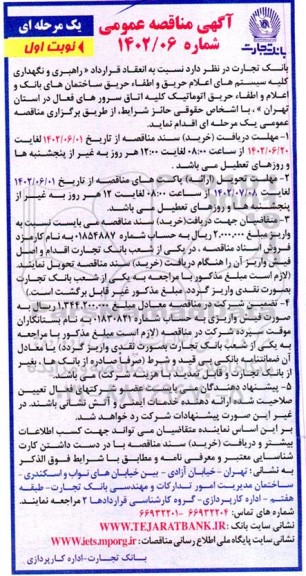 آگهی مناقصه عمومی
شماره ۱۴۰۲/۰۶
یک مرحله ای
نوبت اول
بانک تجارت
بانک تجارت در نظر دارد نسبت به انعقاد قرارداد « راهبری و نگهداری
کلیه سیستم های اعلام حریق و اطفاء حریق ساختمان های بانک و
اعلام و اطفاء حریق اتوماتیک کلیه اتاق سرور های فعال در استان
تهران » ، با اشخاص حقوقی حائز شرایط، از طریق برگزاری مناقصه
عمومی یک مرحله ای اقدام نماید.
۱- مهلت دریافت (خرید) سند مناقصه از تاریخ ۱۴۰۲/۰۶/۰۱ لغایت
۱۴۰۲/۰۶/۲۰ از ساعت ۰۸:۰۰ لغایت ۱۲:۰۰ هر روز به غیر از پنجشنبه ها
و روزهای تعطیل می باشد .
۲- مهلت تحویل (ارائه) پاکت های مناقصه از تاریخ ۱۴۰۲/۰۶/۰۱
لغایت ۱۴۰۲/۰۷/۰۸ از ساعت ۰۸:۰۰ لغایت ۱۲ هر روز به غیر از
پنجشنبه ها و روزهای تعطیل می باشد.
۳- متقاضیان جهت دریافت(خرید) سند مناقصه می بایست نسبت به
واریز مبلغ ۲.۰۰۰.۰۰۰ ریال به حساب شماره ۰۱۸۵۴۸۸۷ به نام کارمزد
فروش اسناد مناقصه ، در یکی از شعب بانک تجارت اقدام و اصل
فیش واریز آن را هنگام دریافت (خرید) سند مناقصه تحویل نمایند.
(لازم است مبلغ مذکور با مراجعه به یکی از شعب بانک تجارت
بصورت نقدی واریز گردد. (مبلغ مذکور غیر قابل برگشت است.)
۴- تضمین شرکت در مناقصه معادل مبلغ ۱.۳۴۴.۲۰۰.۰۰۰ ریال به
صورت فیش واریزی به حساب به نام بستانکاران
موقت سپرده شرکت در مناقصه (لازم است مبلغ مذکور با مراجعه
به یکی از شعب بانک تجارت بصورت نقدی واریز گردد.) یا معادل
آن ضمانتنامه بانکی بی قید و شرط (صرفاً صادره از بانک ها، بغیر
از بانک تجارت و قابل تمدید) به عنوان تضمین شرکت در مناقصه.
۵- پیشنهاد دهندگان می بایست عضو شرکتهای فعال تعیین
صلاحیت شده ارائه دهنده خدمات ایمنی و آتش نشانی باشند. در
غیر این صورت پیشنهادات شرکت رد خواهد شد.
بر این اساس نماینده متقاضیان می تواند جهت کسب اطلاعات
بیشتر و دریافت (خرید) سند مناقصه با در دست داشتن کارت
شناسایی معتبر و معرفی نامه و مطابق با شرایط فوق الذکر
به نشانی : تهران - خیابان آزادی - بین خیابان های نواب و اسکندری -
ساختمان مدیریت امور تدارکات و مهندسی بانک تجارت - طبقه
هفتم - اداره کارپردازی - گروه کارشناسی قراردادها ۲ مراجعه نمایند.
شماره های تماس: ۶۶۹۳۲۲۰۴- ۶۶۹۳۲۲۰۱
نشانی سایت بانک : WWW.TEJARATBANK.IR
نشانی سایت پایگاه ملی اطلاع رسانی مناقصات: www.iets.mporg.ir
بانک تجارت-اداره کارپردازی